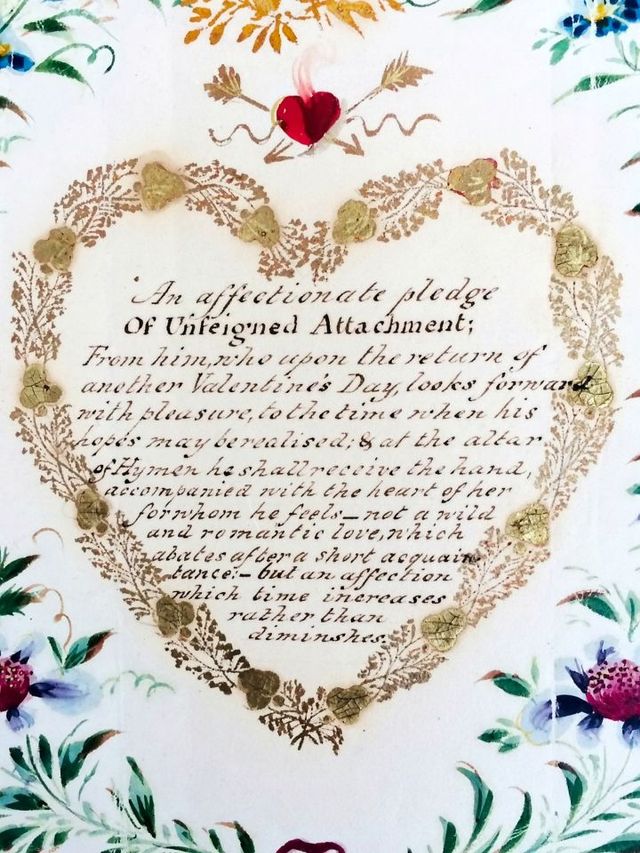 An affectionate pledge
Of Unfeigned Attachment;
From him, who upon the return of
another Valentine's Day, looks forward
with pleasure, to the time when his
hopes may be realised; & at the altar
of Hymen he shall receive the hand,
accompanied with the heart of her
for whom he feels_not a wild
and romantic love, which
abates after a short acquain
tance:-but an affection
which time increases
rather than
diminshes.